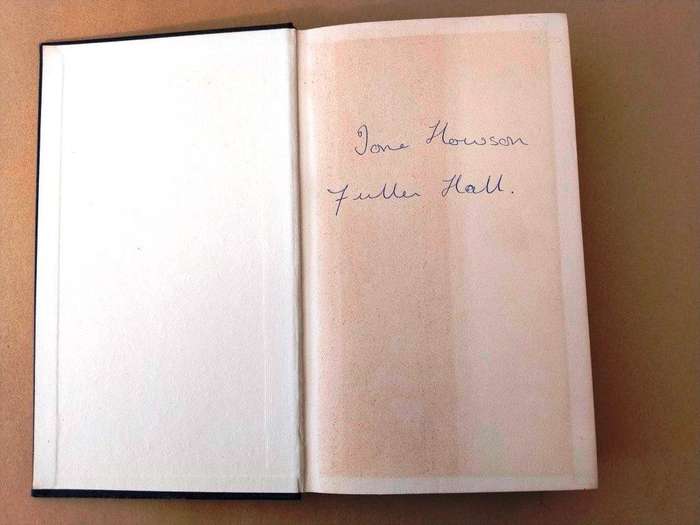 Jane Howson
Fuller Hall.